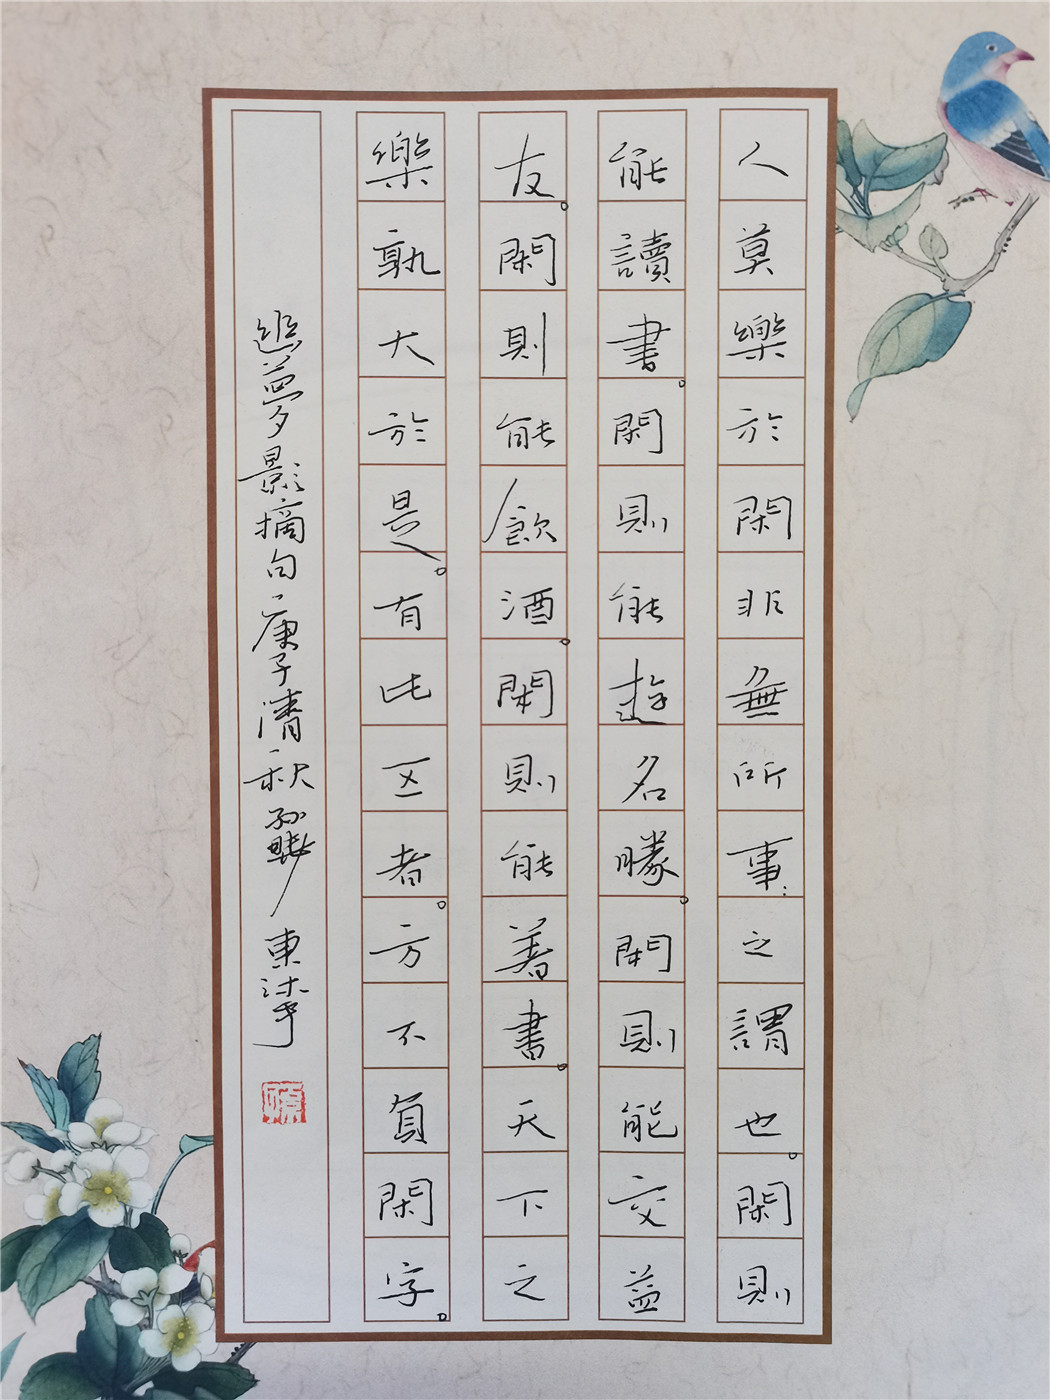 人莫樂於閑非無所事之謂也。閑則
能讀書。閑則能遊名勝。閑則能交益
友。閑則能飲酒。閑則能著書。天下之
樂孰大於是。有此五者。方不負閑字。
幽夢影摘句庚子清秋